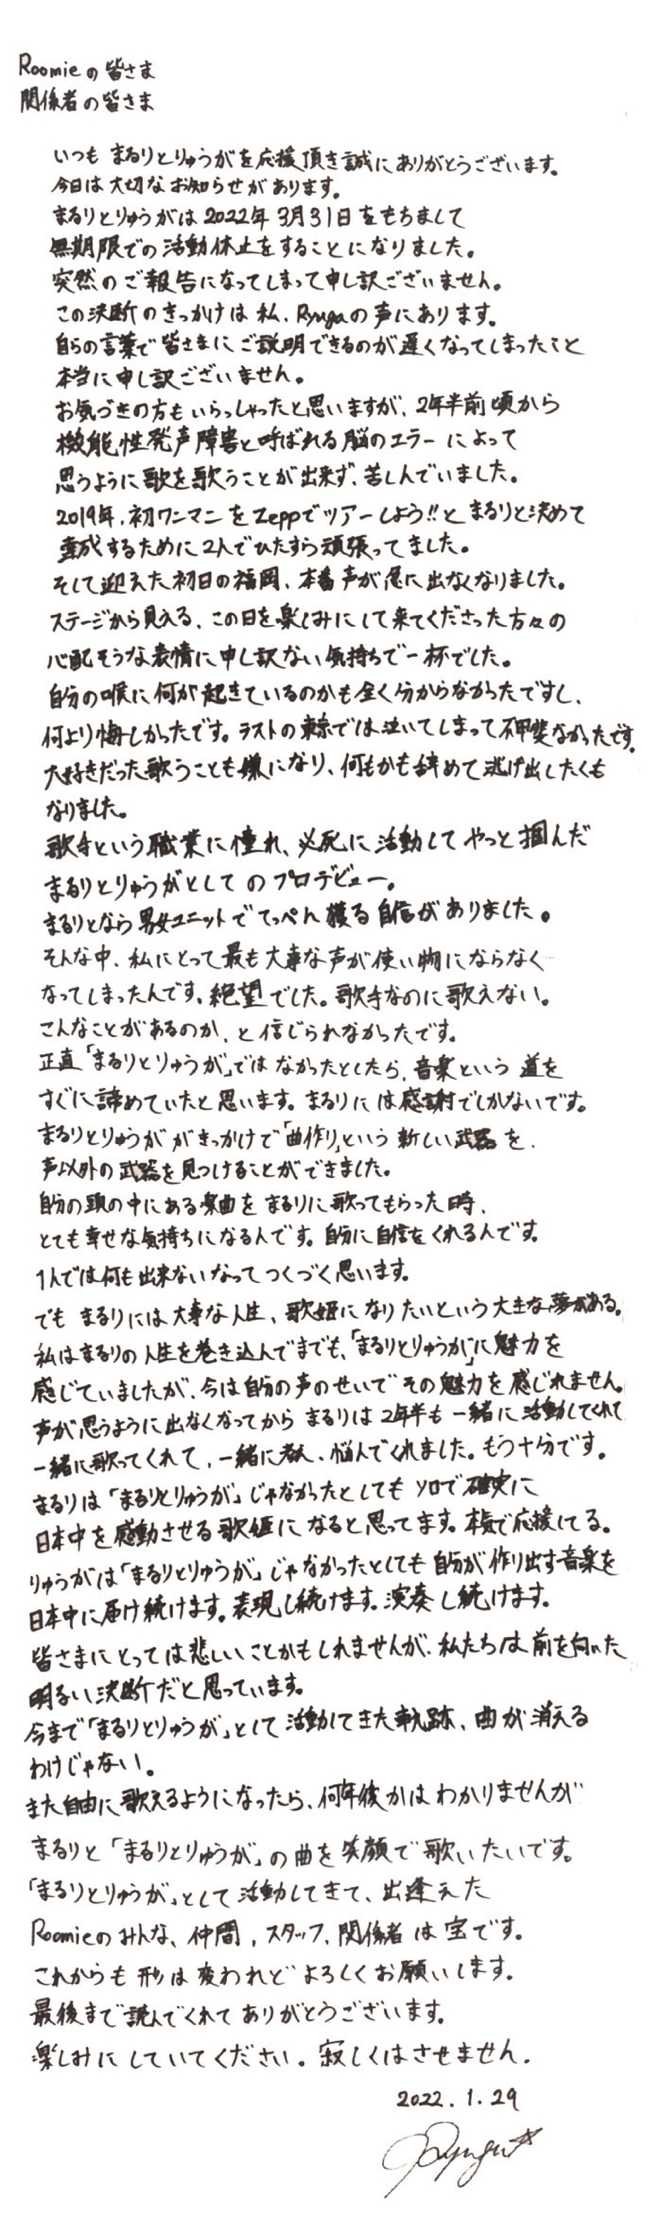 Roomieの皆さま
関係者の皆さま
いつも まるりとりゅうがを応援頂き誠にありがとうございます。
今日は大切なお知らせがあります。
まるりとりゅうがは2022年3月31日をもちまして
無期限での活動休止をすることになりました。
突然のご報告になってしまって申し訳ございません。
この決断のきっかけは私、Ryugaの声にあります。
自らの言葉で皆さまにご説明できるのが遅くなってしまったこと
本当に申し訳ございません。
お気づきの方もいらっしゃったと思いますが、2年半前頃から
機能性発声障害と呼ばれる脳のエラーによって
思うように歌を歌うことが出来ず、苦しんでいました。
2019年、初ワンマンをZeppでツアーしよう!!とまるりと決めて
達成するために2人でひたすら頑張ってました。
そして迎えた初日の福岡、本番声が急に出なくなりました。
ステージから見える、この日を楽しみにして来てくださった方々の
心配そうな表情に申し訳ない気持ちで一杯でした。
自分の喉に何が起きているのかも全く分からなかったですし、
何より悔しかったです。ラストの東京では泣いてしまって不甲斐なかったです。
大好きだった歌うことも嫌になり、何もかも辞めて逃げ出したくも
なりました。
歌手という職業に憧れ、必死に活動してやっと掴んだ
まるりとりゅうがとしてのプロデビュー。
まるりとなら男女ユニットでてっぺん獲る自信がありました。
そんな中、私にとって最も大事な声が使い物にならなく
なってしまったんです。絶望でした。歌手なのに歌えない。
こんなことがあるのか、と信じられなかったです。
正直「まるりとりゅうが」ではなかったとしたら、音楽という道を
すぐに諦めていたと思います。まるりには感謝でしかないです。
まるりとりゅうががきっかけで「曲作り」という新しい武器を、
声以外の武器を見つけることができました。
自分の頭の中にある楽曲をまるりに歌ってもらった時、
とても幸せな気持ちになるんです。自分に自信をくれる人です。
1人では何も出来ないなってつくづく思います。
でもまるりには大事な人生、歌姫になりたいという大きな夢がある。
私はまるりの人生を巻き込んでまでも、「まるりとりゅうが」に魅力を
感じていましたが、今は自分の声のせいでその魅力を感じれません。
声が思うように出なくなってからまるりは2年半も一緒に活動してくれて
一緒に歌ってくれて、一緒に考え、悩んでくれました。もう十分です。
まるりは「まるりとりゅうが」じゃなかったとしてもソロで確実に
日本中を感動させる歌姫になると思ってます。本気で応援してる。
りゅうがは「まるりとりゅうが」じゃなかったとしても自分が作り出す音楽を
日本中に届け続けます。表現し続けます。演奏し続けます。
皆さまにとっては悲しいことかもしれませんが、私たちは前を向いた
明るい決断だと思っています。
今まで「まるりとりゅうが」として活動してきた軌跡、曲が消える
わけじゃない。
また自由に歌えるようになったら、何年後かはわかりませんが
まるりと「まるりとりゅうが」の曲を笑顔で歌いたいです。
「まるりとりゅうが」として活動してきて、出逢えた
Roomieのみんな、仲間、スタッフ、関係者は宝です。
これからも形は変われどよろしくお願いします。
最後まで読んでくれてありがとうございます。
楽しみにしていてください。寂しくはさせません。
2022.1.29
Ryuga